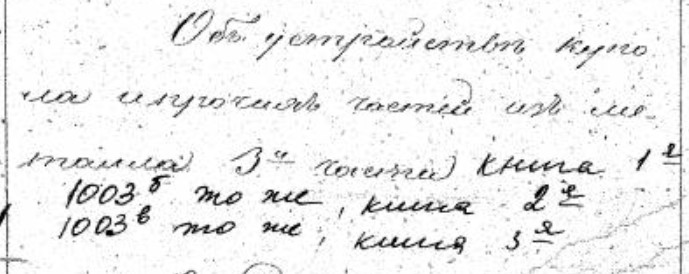 Объ устройствѣ купо
ла и прочихъ частей изъ ме
талла 3я часть книга 1я
1003б то же, книга 2я
1003в то же, книга 3я